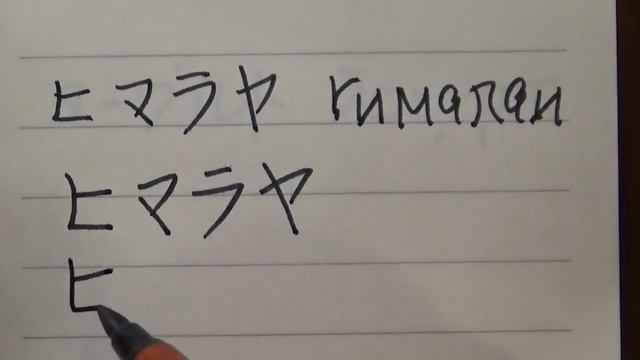 ヒマラヤ гималаи
ヒマラヤ
ヒ